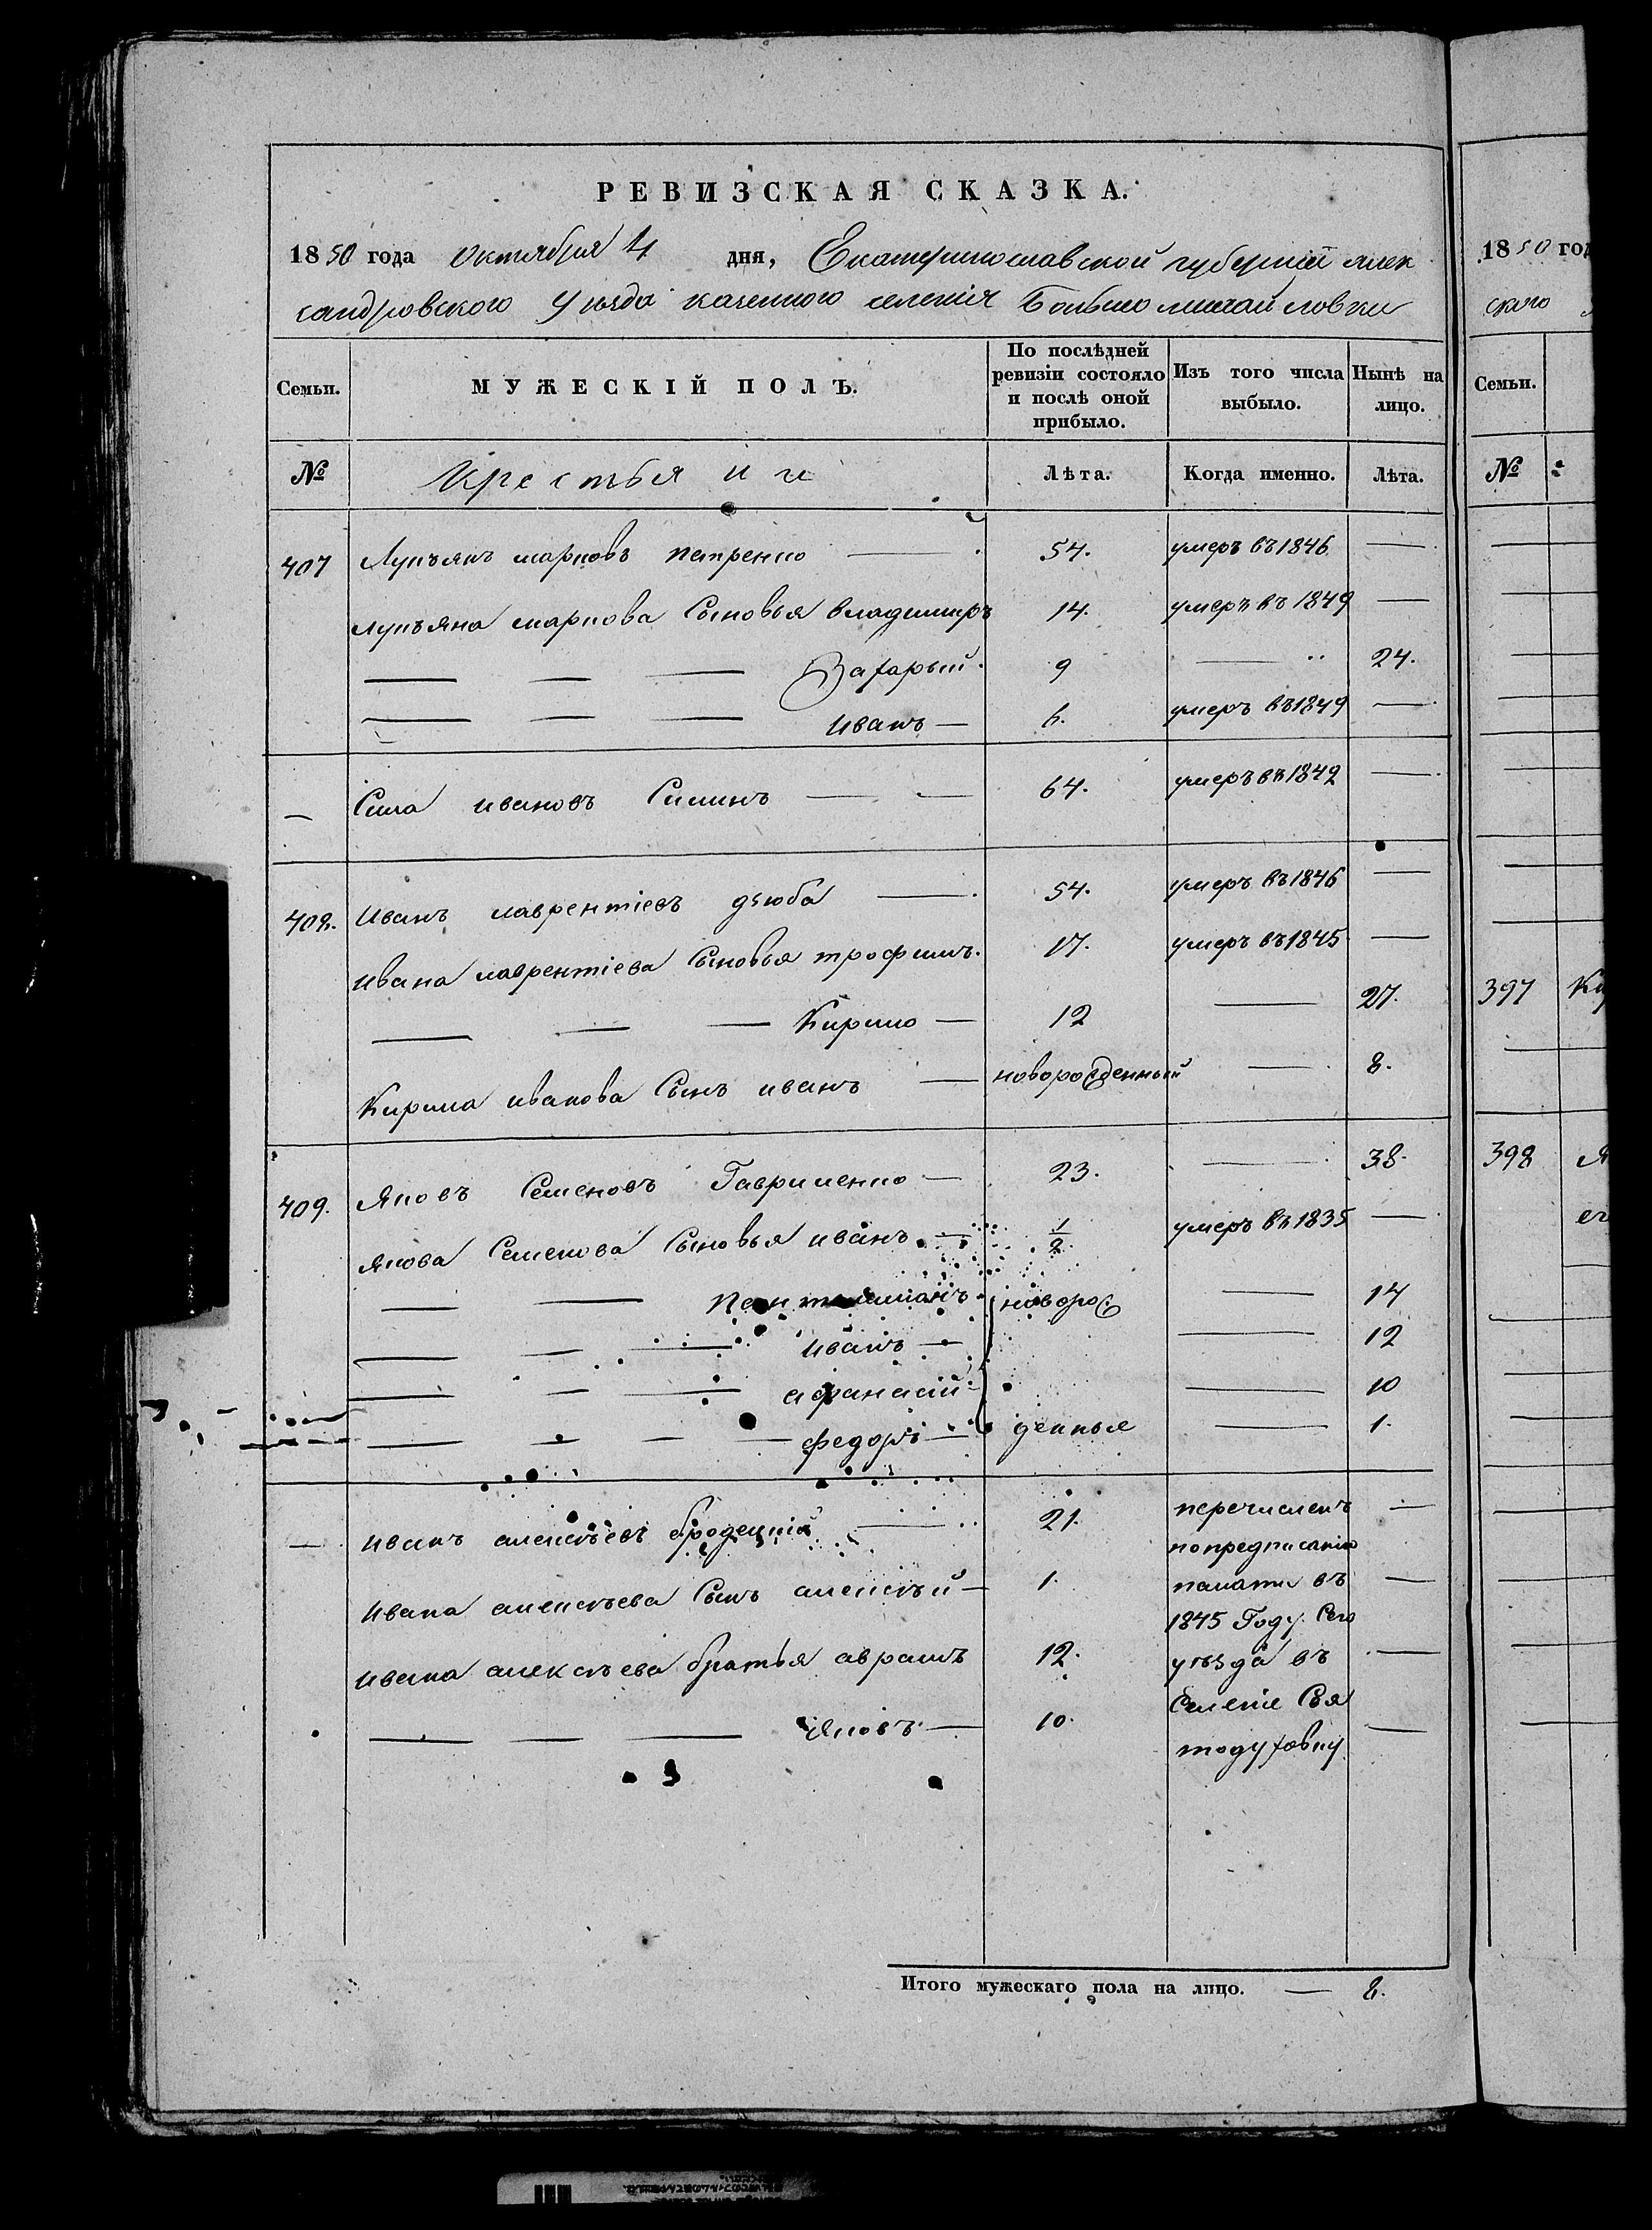 РЕВИЗСКАЯ СКАЗКА.
1850 года Октября 4 дня, Екатеринославской губерніи алек
сандровского Уѣзда казенного селенія Большомихайловки
Семьи. МУЖЕСКІЙ ПОЛЪ. По послѣдней ревизіи состояло и послѣ оной прибыло. Изъ того числа выбыло. Нынѣ на лицо.
№ Крестьяни Лѣта. Когда именно. Лѣта.
407 Лукъянъ марковъ петренко 54. умеръ въ 1846 —
лукъяна маркова Сыновья владимиръ 14. умеръ въ 1849 —
— — — Захарый 9 — 24.
— — — иванъ — 6. умеръ въ 1849 —
— Сила ивановъ Силинъ — — 64. умеръ въ 1842 —
408. иванъ лаврентіевъ дзюба — 54. умеръ въ 1846 —
ивана лаврентіева Сыновья трофимъ. 17. умеръ въ 1845 —
— — — Кирило — 12 — 27.
Кирила иванова Сынъ иванъ — новорожденный — 8.
409. Яковъ Семеновъ Гавриленко — 23. — 38.
якова Семенова Сыновья иванъ — 1/2 умеръ въ 1835 —
— — пантелимонъ новорож — 14
— — — иванъ — — 12
— — — афанасій — 10
— — — — федоръ — денные — 1.
— иванъ алексѣевъ бродецкій — 21. перечисленъ —
по предписанію
ивана алексѣева Сынъ алексѣй — 1. палаты въ —
1845 Году. Сего
ивана алексѣева братья аврамъ 12. уѣзда въ —
Селеніе Свя
— — — яковъ — 10. тодуховку —
Итого мужескаго пола на лицо. — 8.
1850 год
ского
Семьи.
№
397 Ки
398 Я
ег